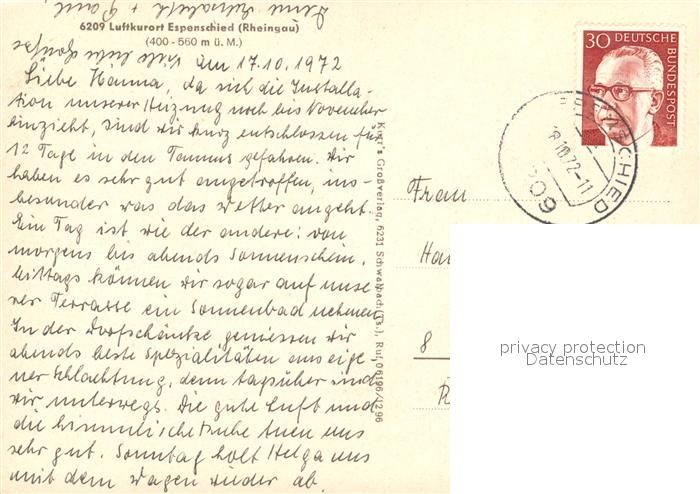 6209 Luftkurort Espenschied (Rheingau)
(400 - 560 m ü. M.)
am 17.10.1972
Liebe Hanna, da sich die Installa-
tion unserer Heizung noch bis November
hinzieht, sind wir kurz entschlossen für
12 Tage in den Taunus gefahren. Wir
haben es sehr gut angetroffen, ins-
besonder was das Wetter angeht.
Ein Tag ist wie der andere: von
morgens bis abends Sonnenschein.
Mittags können wir sogar auf unse
rer Terrasse ein Sonnenbad nehmen.
In der Dorfschänke geniessen wir
abends beste Spezialitäten aus eige
ner Schlachtung, denn tagsüber sind
wir unterwegs. Die gute Luft und
die himmlische Ruhe tuen uns
sehr gut. Sonntag holt Helga uns
mit dem Wagen wieder ab.
Viele liebe Grüße
Deine Elisabeth + Paul
Großverlag, 6231 Schwalbach (Ts.), Ruf 06196/1296
30 DEUTSCHE
BUNDESPOST
ESPENSCHIED
18.10.72-11
6209
Frau
Ha
8
privacy protection
Datenschutz